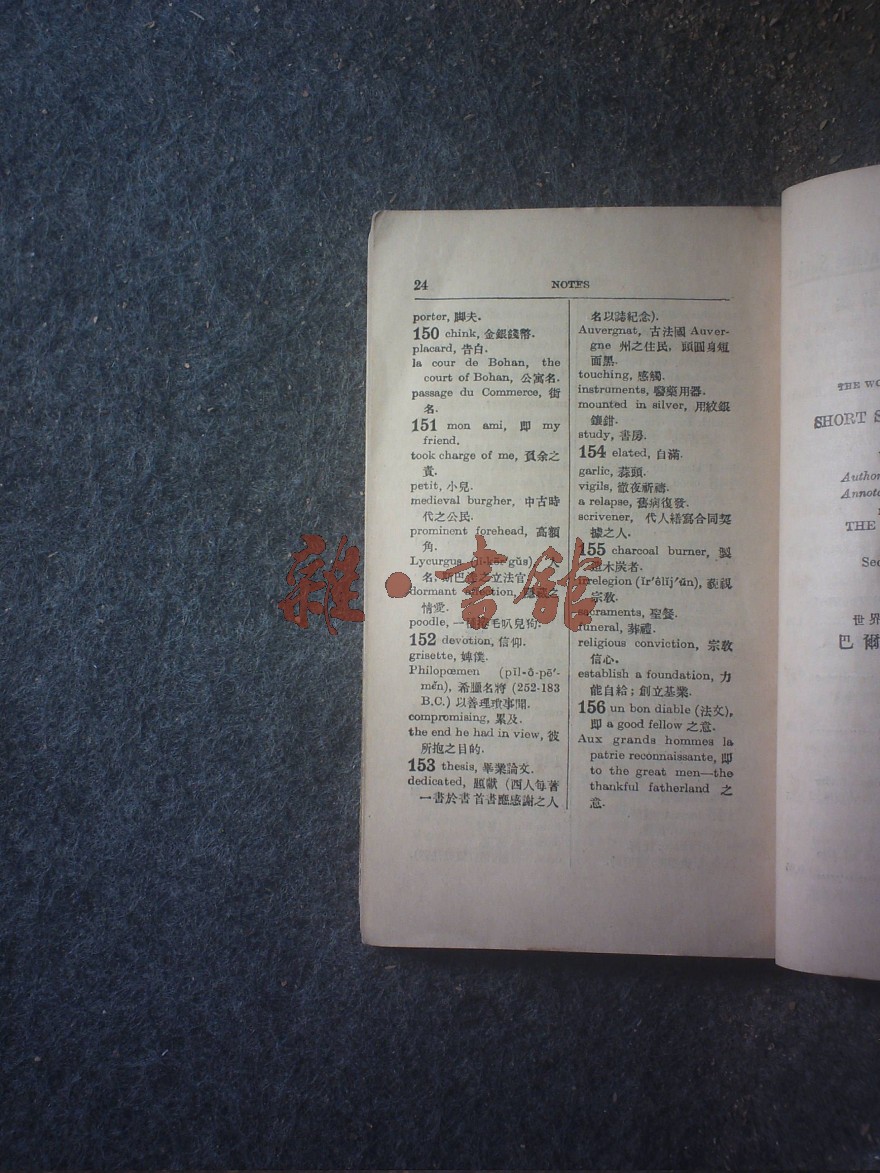 24 NOTES
porter, 脚夫.
150 chink, 金銀錢幣.
placard, 告白.
la cour de Bohan, the
court of Bohan, 公寓名.
passage du Commerce, 街
名.
151 mon ami, 即 my
friend.
took charge of me, 負余之
責.
petit, 小兒.
medieval burgher, 中古時
代之公民.
prominent forehead, 高額
角.
Lycurgus
名, 斯巴達之立法官
dormant affection, 隱藏之
情愛.
poodle, 一種捲毛叭兒狗.
152 devotion, 信仰.
grisette, 婢僕.
Philopœmen (pĭl-ô-pē′-
mĕn), 希臘名將 (252-183
B.C.) 以善理瑣事聞.
compromising, 累及.
the end he had in view, 彼
所抱之目的.
153 thesis, 畢業論文.
dedicated, 題獻 (西人每著
一書於書首書應感謝之人
名以誌紀念).
Auvergnat, 古法國 Auver-
gne 州之住民, 頭圓身短
面黑.
touching, 感觸.
instruments, 醫藥用器.
mounted in silver, 用紋銀
鑲鉗.
study, 書房.
154 elated, 自滿.
garlic, 蒜頭.
vigils, 徹夜祈禱.
a relapse, 舊病復發.
scrivener, 代人繕寫合同契
據之人.
155 charcoal burner, 製
木炭者.
irrelegion (ĭr′êlĭj′ŭn), 藐視
宗敎.
sacraments, 聖餐.
funeral, 葬禮.
religious conviction, 宗敎
信心.
establish a foundation, 力
能自給; 創立基業.
156 un bon diable (法文),
即 a good fellow 之意.
Aux grands hommes la
patrie reconnaissante, 即
to the great men—the
thankful fatherland 之
意.
THE WO
SHORT S
Author
Annota
THE
Sec
世界
巴爾
雜·書館